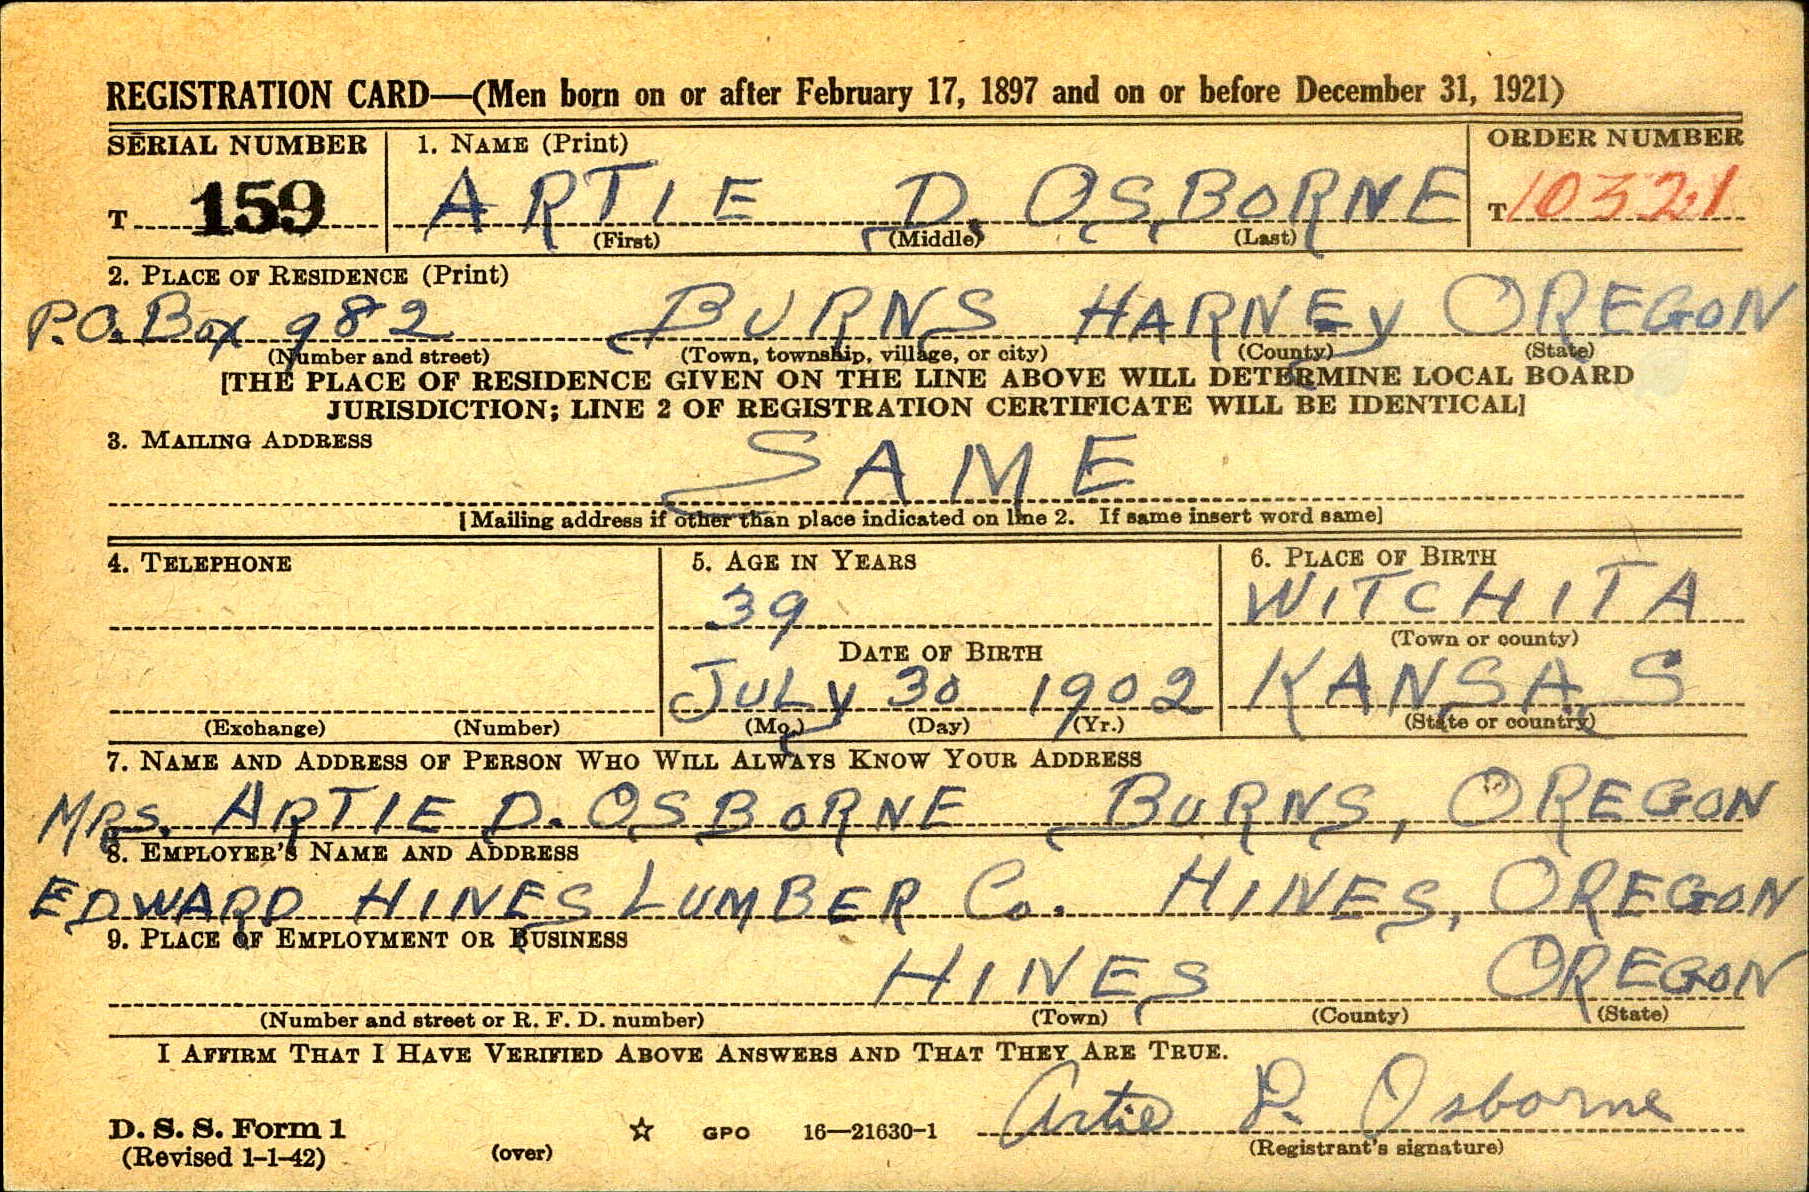 REGISTRATION CARD—(Men born on or after February 17, 1897 and on or before December 31, 1921)
SERIAL NUMBER 1. NAME (Print) ORDER NUMBER
T 159 ARTIE D. OSBORNE T 10321
(First) (Middle) (Last)
2. PLACE OF RESIDENCE (Print)
P.O. Box 982 BURNS HARNEY OREGON
(Number and street) (Town, township, village, or city) (County) (State)
[THE PLACE OF RESIDENCE GIVEN ON THE LINE ABOVE WILL DETERMINE LOCAL BOARD
JURISDICTION; LINE 2 OF REGISTRATION CERTIFICATE WILL BE IDENTICAL]
3. MAILING ADDRESS
SAME
[Mailing address if other than place indicated on line 2. If same insert word same]
4. TELEPHONE 5. AGE IN YEARS 6. PLACE OF BIRTH
39 WITCHITA
DATE OF BIRTH (Town or county)
JULY 30 1902 KANSAS
(Exchange) (Number) (Mo.) (Day) (Yr.) (State or country)
7. NAME AND ADDRESS OF PERSON WHO WILL ALWAYS KNOW YOUR ADDRESS
MRS. ARTIE D. OSBORNE BURNS, OREGON
8. EMPLOYER'S NAME AND ADDRESS
EDWARD HINES LUMBER Co. HINES, OREGON
9. PLACE OF EMPLOYMENT OR BUSINESS
HINES OREGON
(Number and street or R. F. D. number) (Town) (County) (State)
I AFFIRM THAT I HAVE VERIFIED ABOVE ANSWERS AND THAT THEY ARE TRUE.
Artie D. Osborne
D. S. S. Form 1 GPO 16—21630-1
(Revised 1-1-42) (over) (Registrant's signature)